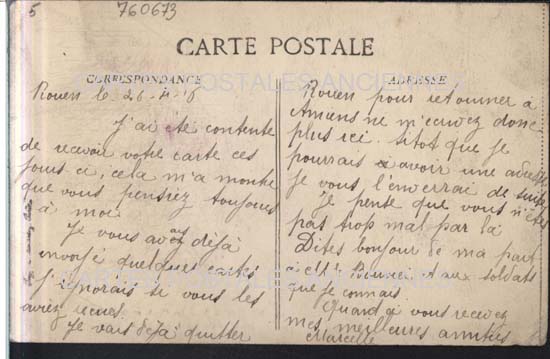 5
760673
CARTE POSTALE
CORRESPONDANCE
Rouen le 26-4-16
J'ai été contente
de recevoir votre carte ces
jours ci, cela m'a montré
que vous pensiez toujours
à moi
Je vous avais déjà
envoyé quelques cartes
J'ignorais si vous les
aviez reçues.
Je vais déjà quitter
ADRESSE
Rouen pour retourner à
Amiens ne m'écrivez donc
plus ici. Sitot que je
pourrais avoir une adresse
je vous l'enverrai de suite
Je pense que vous n'êtes
pas trop mal par là
Dites bonjour de ma part
à Mr et aux soldats
que je connais
Quand à vous recevez
mes meilleures amitiés
Marcelle
CARTES POSTALES ANCIENNES
CARTES POSTALES ANCIENNES